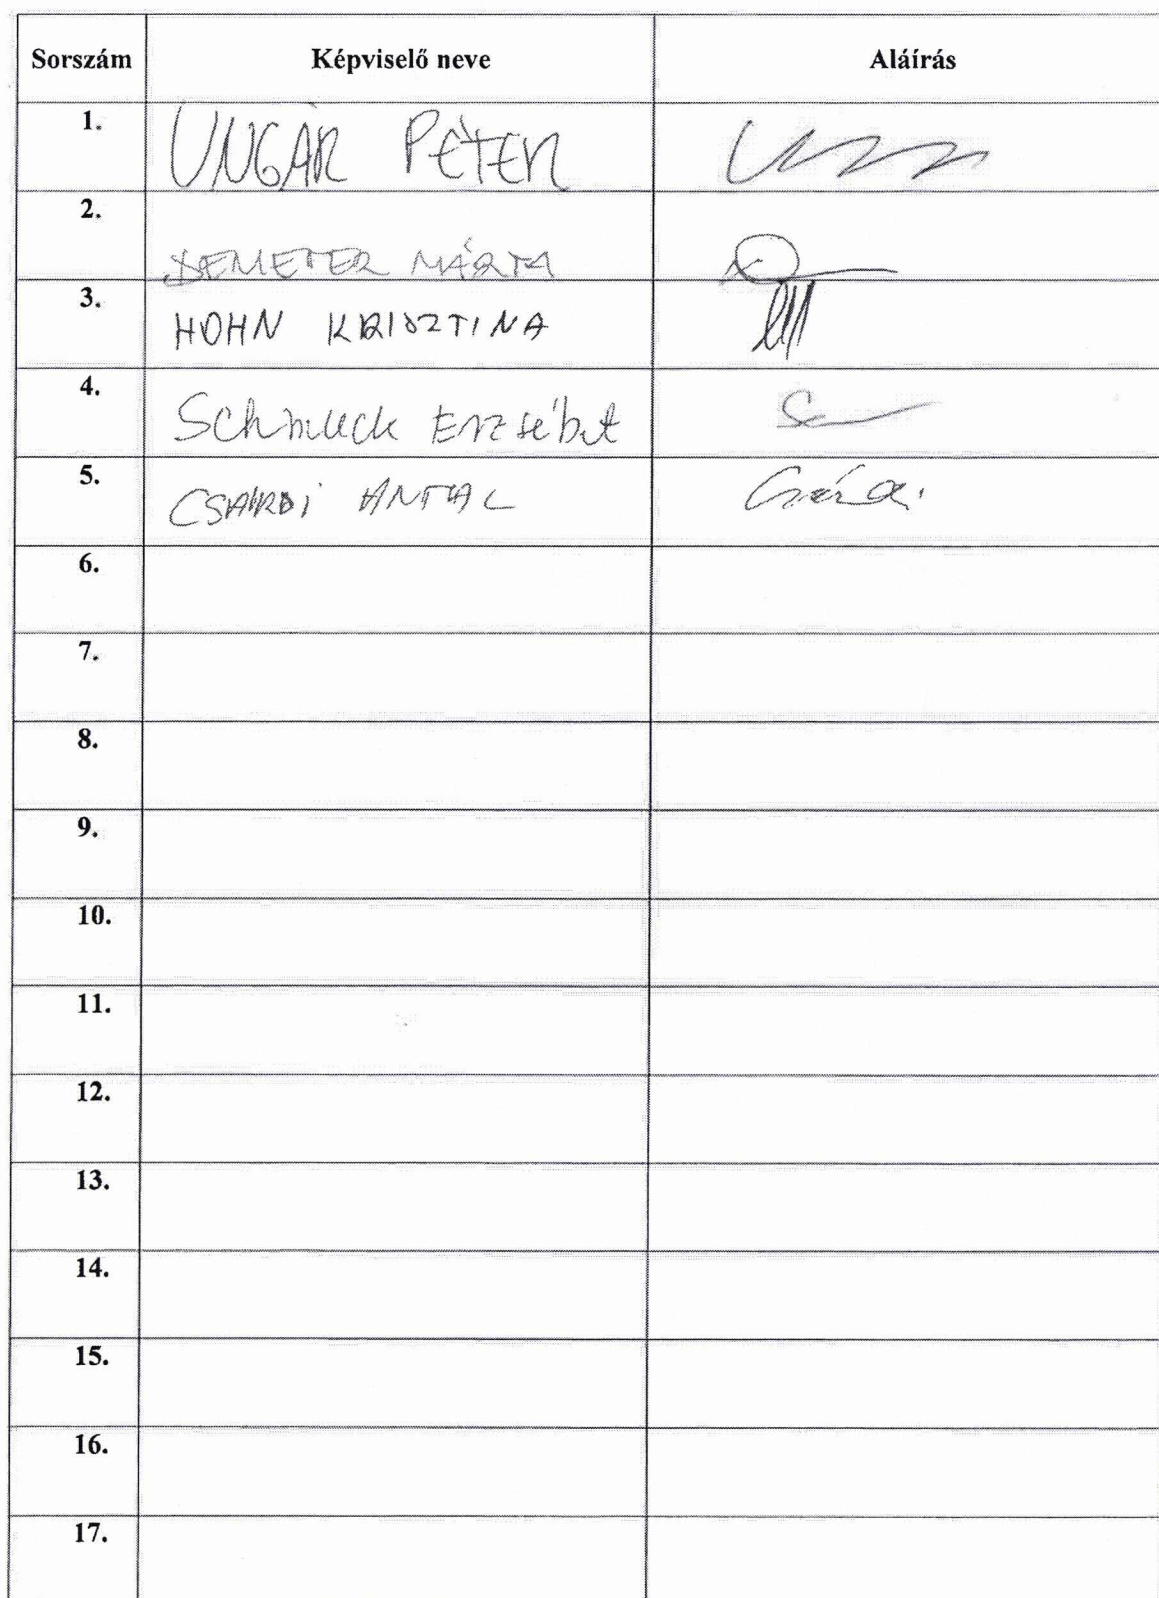 Sorszám Képviselő neve Aláírás
1. UNGÁR PÉTER
2. DEMETER MÁRTA
3. HOHN KRISZTINA
4. Schmuck Erzsébet
5. CSÁRDI ANTAL
6.
7.
8.
9.
10.
11.
12.
13.
14.
15.
16.
17.